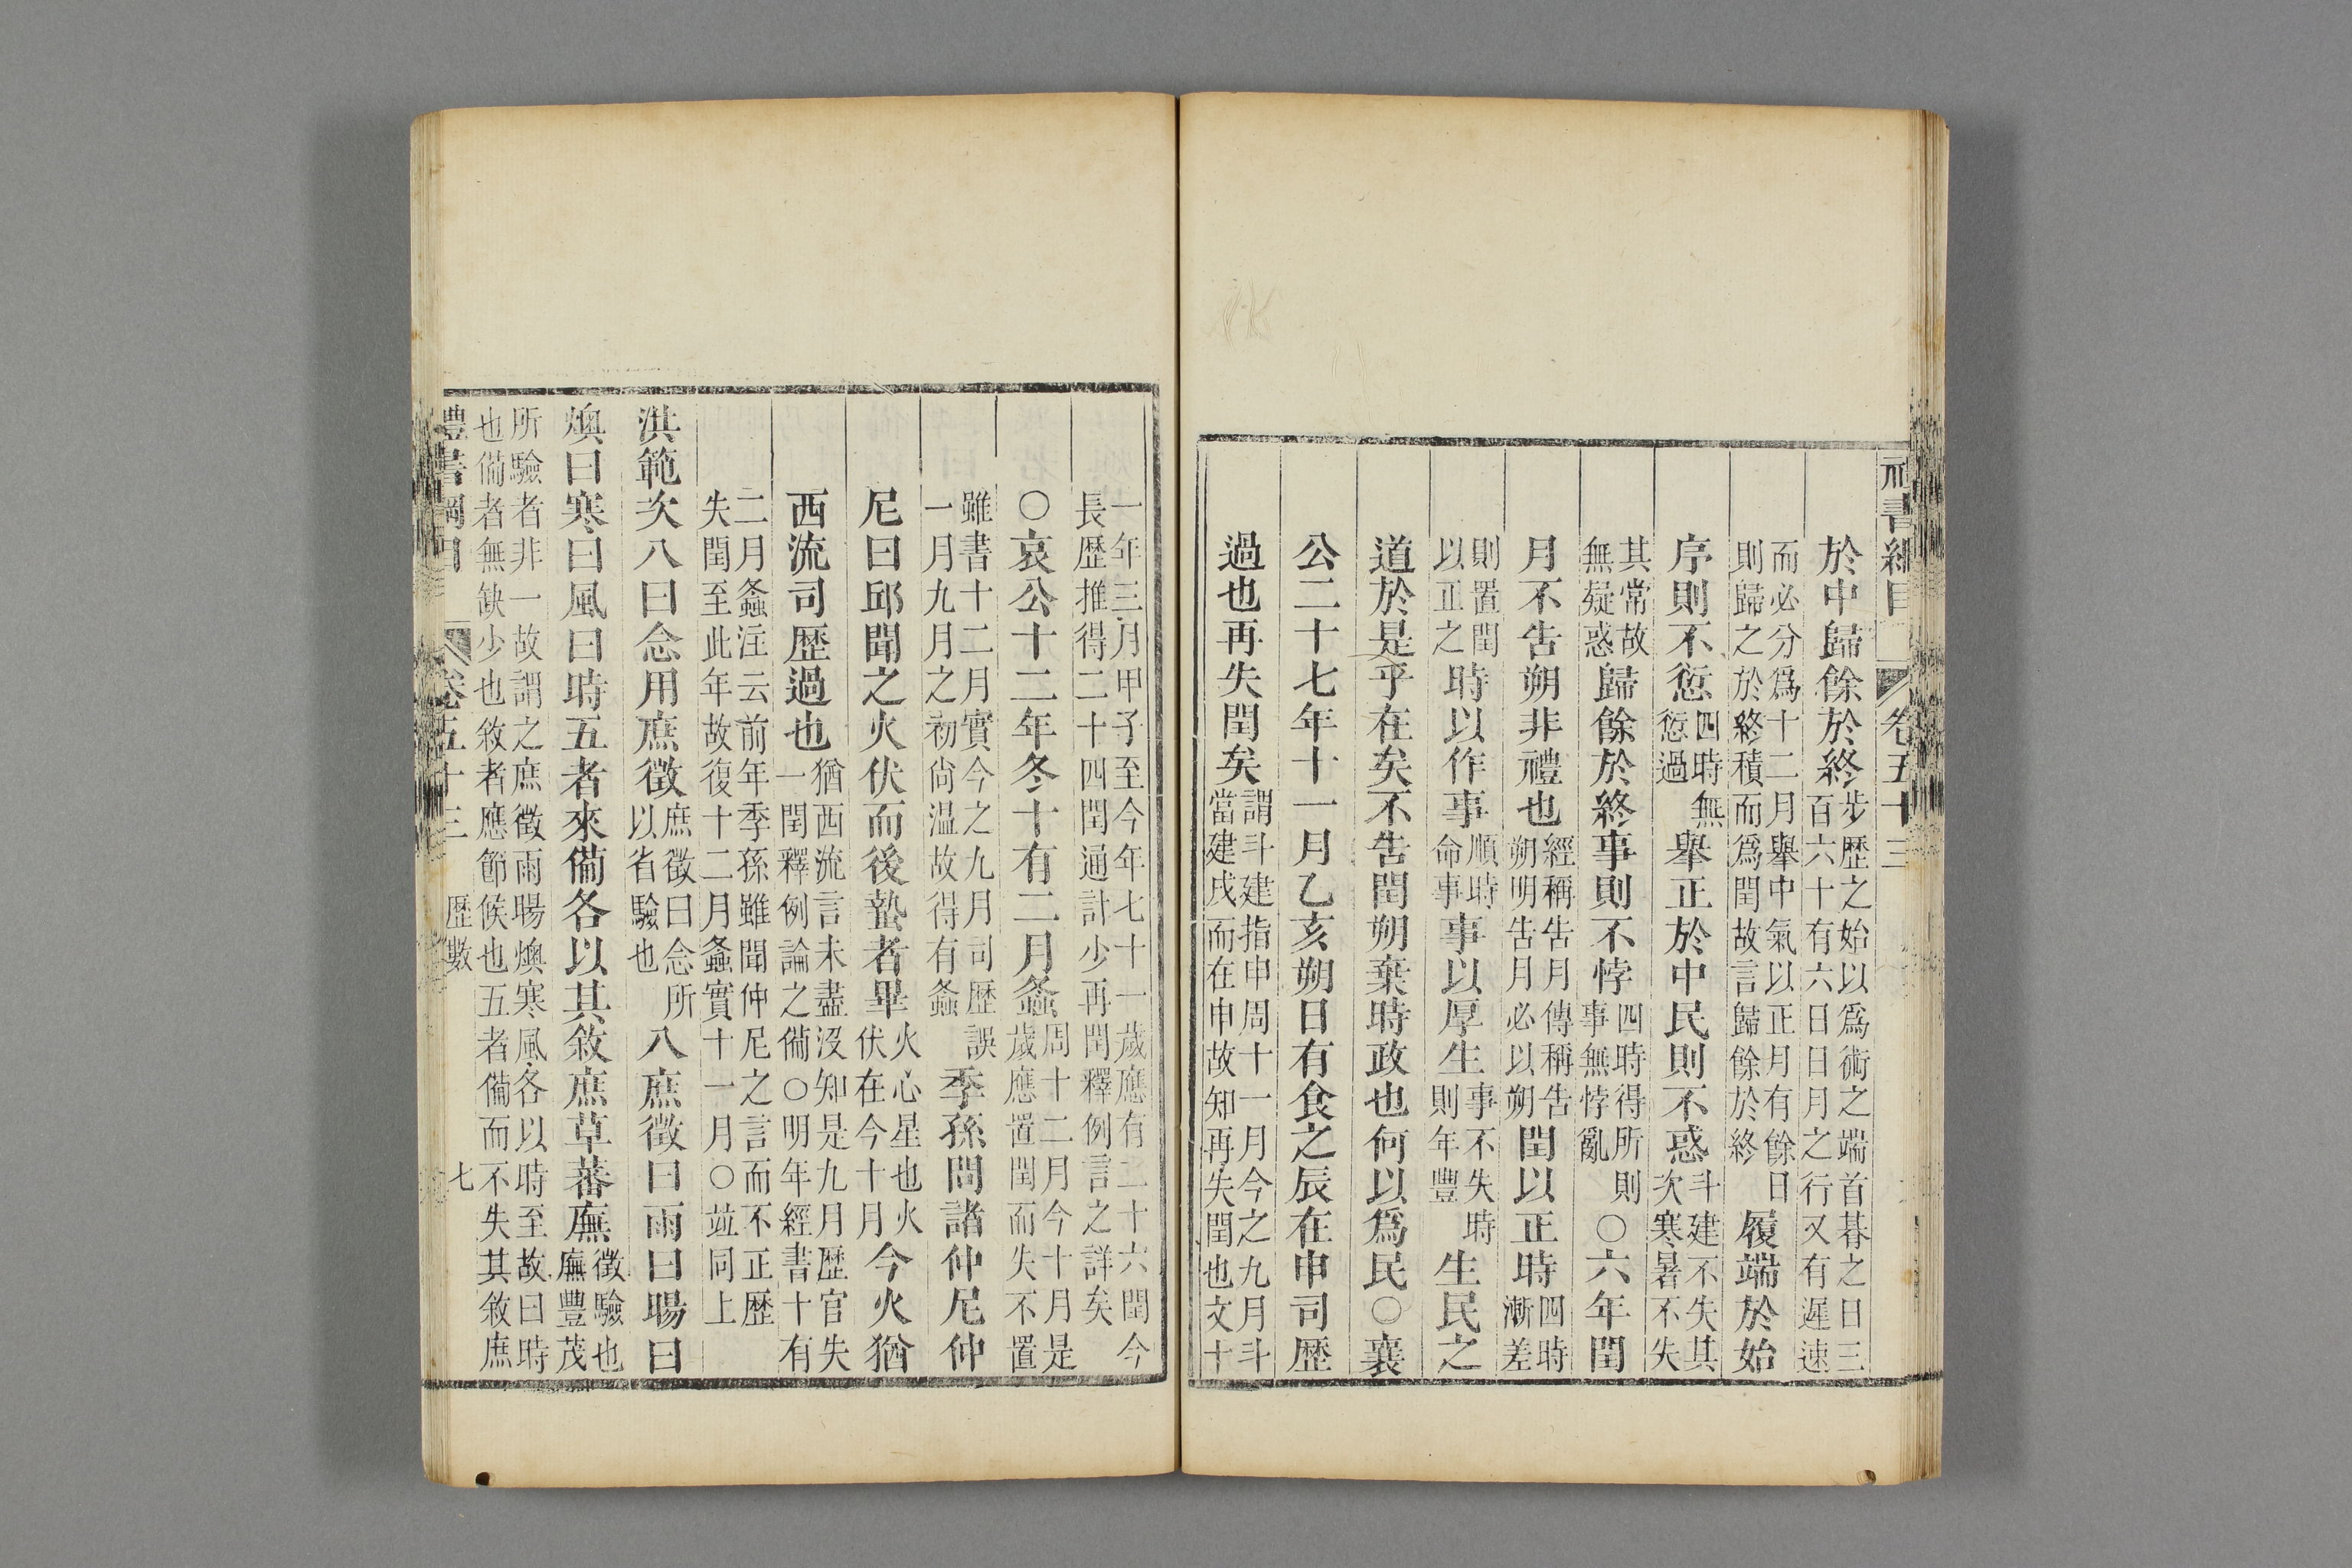 禮書綱目 卷五十三
於中歸餘於終步歷之始以爲術之端首朞之日三百六十有六日日月之行又有遲速
而必分爲十二月舉中氣以正月有餘日則歸之於終積而爲閏故言歸餘於終履端於始
序則不愆四時無愆過舉正於中民則不惑斗建不失其次寒暑不失
其常故無疑惑歸餘於終事則不悖四時得所則事無悖亂○六年閏
月不告朔非禮也經稱告月傳稱告朔明告月必以朔閏以正時四時漸差
則置閏以正之時以作事順時命事事以厚生事不失時則年豐生民之
道於是乎在矣不告閏朔棄時政也何以爲民○襄
公二十七年十一月乙亥朔日有食之辰在申司歷
過也再失閏矣謂斗建指申周十一月今之九月斗當建戌而在申故知再失閏也文十
一年三月甲子至今年七十一歲應有二十六閏今長歷推得二十四閏通計少再閏釋例言之詳矣
○哀公十二年冬十有二月螽周十二月今十月是歲應置閏而失不置
雖書十二月實今之九月司歷誤一月九月之初尚温故得有螽季孫問諸仲尼仲
尼曰邱聞之火伏而後蟄者畢火心星也火伏在今十月今火猶
西流司歷過也猶西流言未盡沒知是九月歷官失一閏釋例論之備○明年經書十有
二月螽注云前年季孫雖聞仲尼之言而不正歷失閏至此年故復十二月螽實十一月○竝同上
洪範次八曰念用庶徵庶徵曰念所以省驗也八庶徵曰雨曰暘曰
燠曰寒曰風曰時五者來備各以其敘庶草蕃廡徵驗也廡豐茂
所驗者非一故謂之庶徵雨暘燠寒風各以時至故曰時也備者無缺少也敘者應節候也五者備而不失其敘庶
禮書綱目 卷五十三 歷數 七